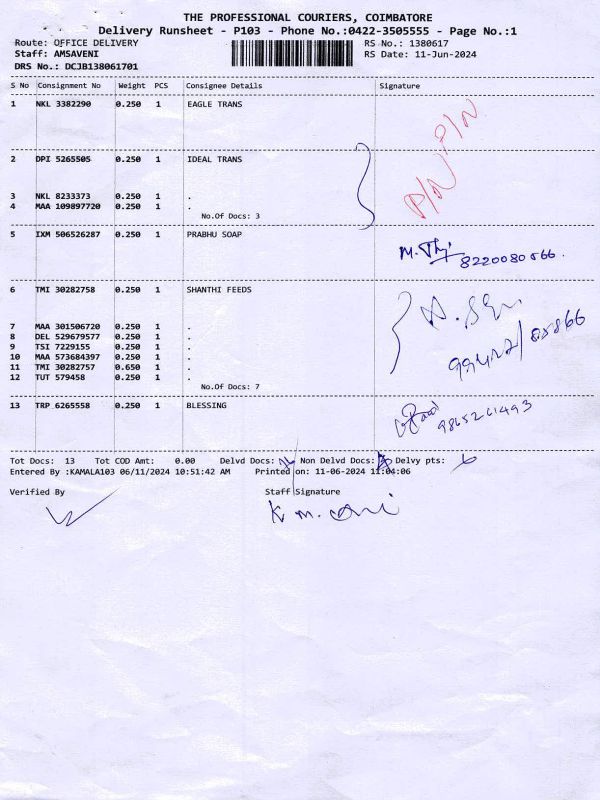 THE PROFESSIONAL COURIERS, COIMBATORE
Delivery Runsheet - P103 - Phone No.:0422-3505555 - Page No.:1
Route: OFFICE DELIVERY RS No.: 1380617
Staff: AMSAVENI RS Date: 11-Jun-2024
DRS No.: DCJB138061701
S No Consignment No Weight PCS Consignee Details Signature
1 NKL 3382290 0.250 1 EAGLE TRANS
P/N
2 DPI 5265505 0.250 1 IDEAL TRANS
P/N
3 NKL 8233373 0.250 1 .
4 MAA 109897720 0.250 1 .
No.Of Docs: 3
5 IXM 506526287 0.250 1 PRABHU SOAP
8220080566.
6 TMI 30282758 0.250 1 SHANTHI FEEDS
7 MAA 301506720 0.250 1 .
8 DEL 529679577 0.250 1 .
9 TSI 7229155 0.250 1 .
10 MAA 573684397 0.250 1 .
11 TMI 30282757 0.650 1 .
12 TUT 579458 0.250 1 .
No.Of Docs: 7
13 TRP 6265558 0.250 1 BLESSING
9865261493
Tot Docs: 13 Tot COD Amt: 0.00 Delvd Docs: Non Delvd Docs: Delvy pts:
Entered By :KAMALA103 06/11/2024 10:51:42 AM Printed on: 11-06-2024 11:04:06
Verified By Staff Signature